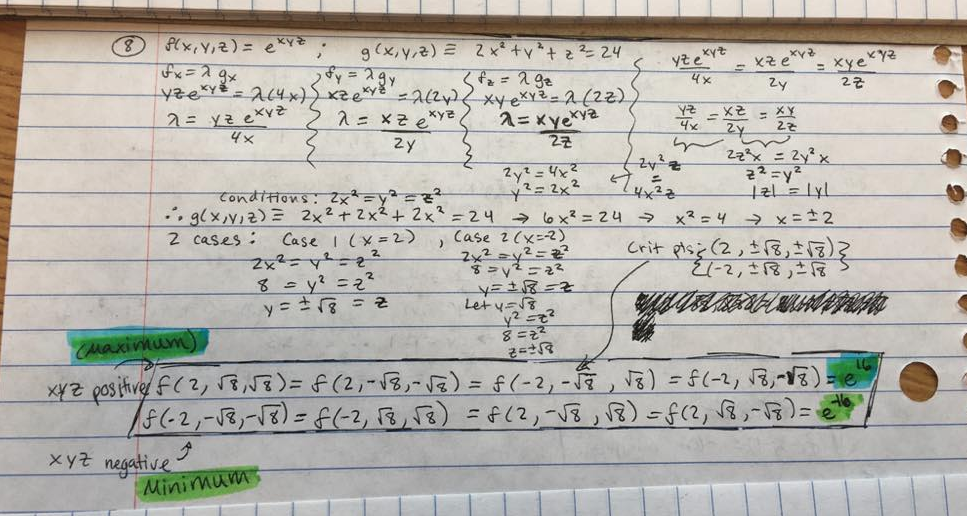 ⑧ f(x,y,z) = e^{xyz} ; g(x,y,z) ≡ 2x² + y² + z² = 24
f_x = λ g_x
yz e^{xyz} = λ(4x)
λ = yz e^{xyz} / 4x
f_y = λ g_y
xz e^{xyz} = λ(2y)
λ = xz e^{xyz} / 2y
f_z = λ g_z
xy e^{xyz} = λ(2z)
λ = xy e^{xyz} / 2z
yz e^{xyz} / 4x = xz e^{xyz} / 2y = xy e^{xyz} / 2z
yz / 4x = xz / 2y = xy / 2z
2y²z = 4x²z
2y² = 4x²
y² = 2x²
2z²x = 2y²x
z² = y²
|z| = |y|
Conditions: 2x² = y² = z²
∴ g(x,y,z) ≡ 2x² + 2x² + 2x² = 24 → 6x² = 24 → x² = 4 → x = ±2
2 cases: Case 1 (x=2) , Case 2 (x=-2)
2x² = y² = z²
8 = y² = z²
y = ±√8 = z
2x² = y² = z²
8 = y² = z²
y = ±√8 = z
Let y = √8
y² = z²
8 = z²
z = ±√8
Crit pts: {(2, ±√8, ±√8)}
{(-2, ±√8, ±√8}
(Maximum)
xyz positive f(2, √8, √8) = f(2, -√8, -√8) = f(-2, -√8, √8) = f(-2, √8, -√8) = e^{16}
f(-2, -√8, -√8) = f(-2, √8, √8) = f(2, -√8, √8) = f(2, √8, -√8) = e^{-16}
xyz negative
Minimum